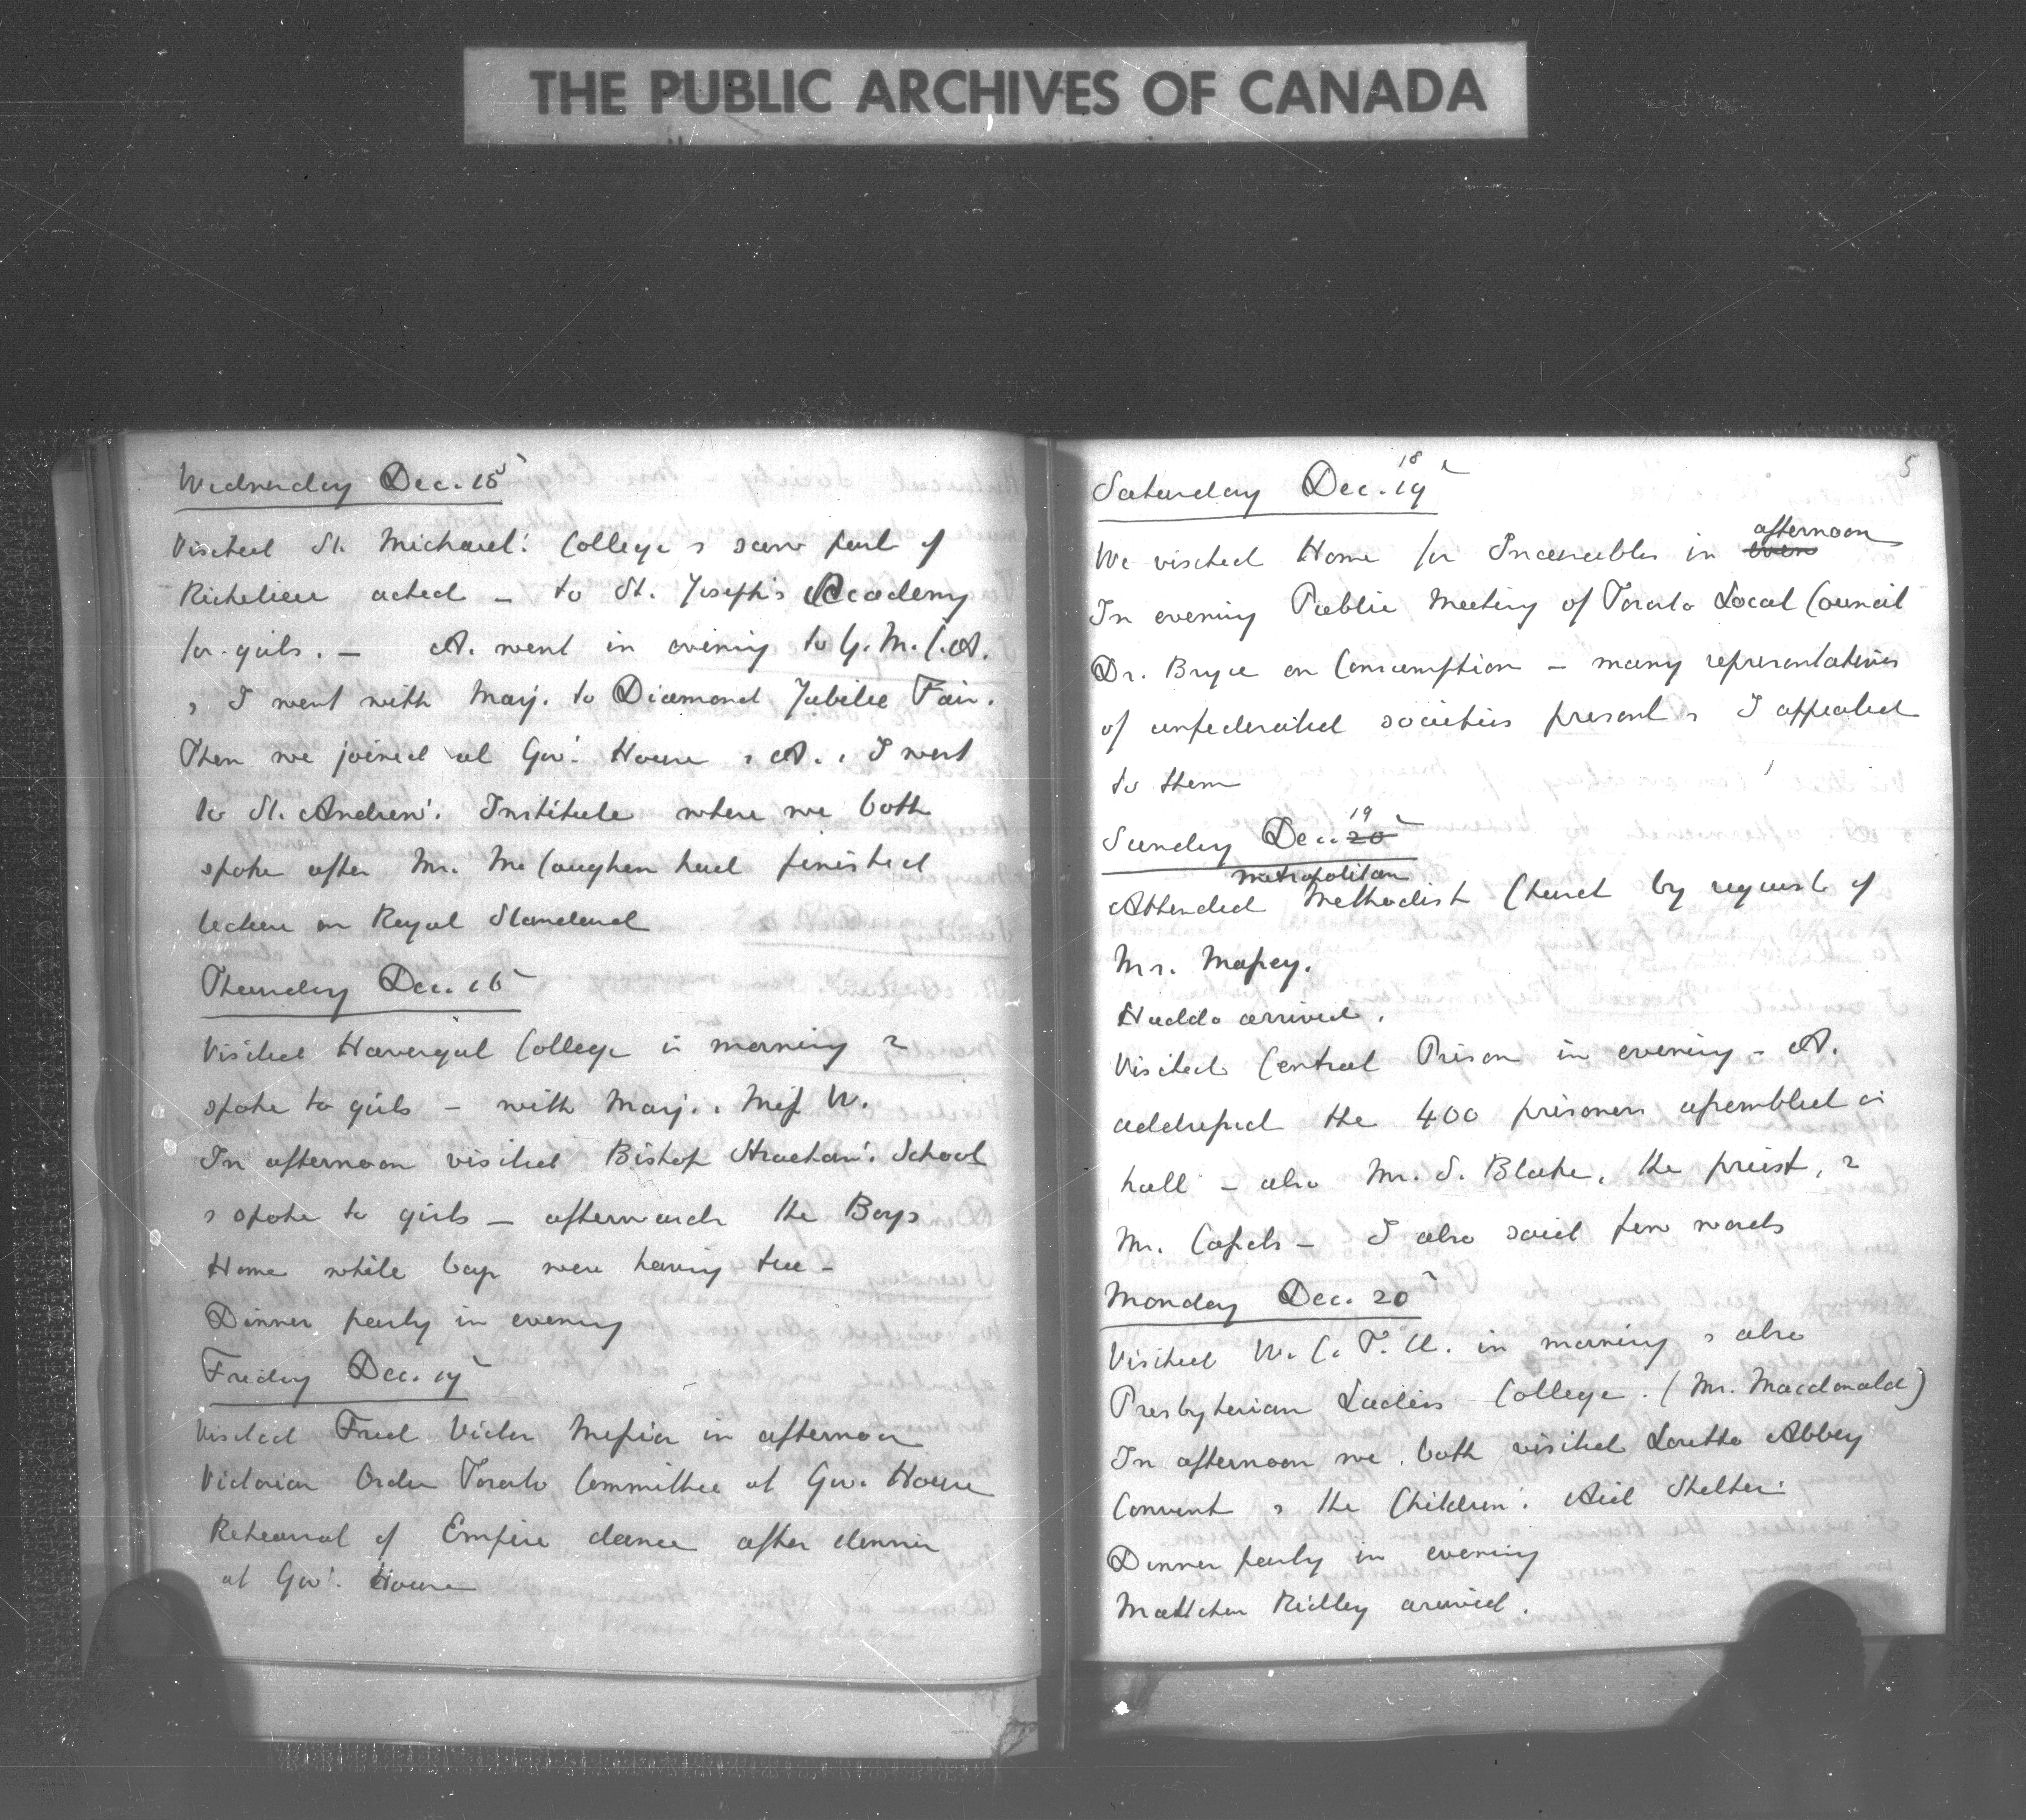 THE PUBLIC ARCHIVES OF CANADA
Wednesday Dec. 15
Visited St. Michael's College & saw part of
Richelieu acted – to St. Joseph's Academy
for girls. – A. went in evening to Y.M.C.A.
& I went with Marj. to Diamond Jubilee Fair.
Then we joined at Govt. House & A. & I went
to St. Andrew's Institute where we both
spoke after Mr. McCaughen had finished
lecture on Royal Standard
Thursday Dec. 16
Visited Havergal College in morning &
spoke to girls – with Marj. & Miss W.
In afternoon visited Bishop Strachan's School
& spoke to girls – afterwards the Boys
Home while boys were having tea –
Dinner party in evening
Friday Dec. 17
Visited Fred Victor Mission in afternoon
Victorian Order Toronto Committee at Gov. House
Rehearsal of Empire dance after dinner
at Govt. House
5
Saturday Dec. 18 19
We visited Home for Incurables in even afternoon
In evening Public Meeting of Toronto Local Council
Dr. Bryce on Consumption – many representatives
of unfederated societies present & I appealed
to them
Sunday Dec. 20 19
Attended Metropolitan Methodist Church by request of
Mr. Massey.
Haddo arrived.
Visited Central Prison in evening – A.
addressed the 400 prisoners assembled in
hall – also Mr. S. Blake, the priest, &
Mr. – I also said few words
Monday Dec. 20
Visited W.C.T.U. in morning & also
Presbyterian Ladies College. (Mr. Macdonald)
In afternoon we both visited Loretto Abbey
Convent & the Children's Aid Shelter.
Dinner party in evening
Matthew Ridley arrived.